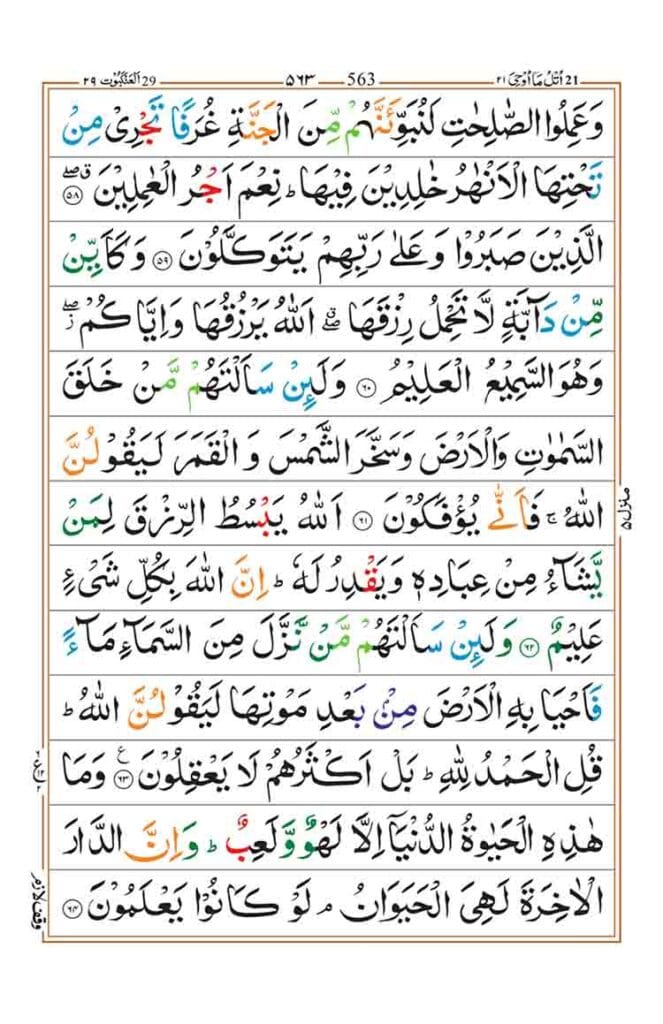 21 اُتْلُ مَا اُوْحِیَ ۲۱ 563 ۵۶۳ 29 اَلْعَنْكَبُوْت ۲۹
وَعَمِلُوا الصّٰلِحٰتِ لَنُبَوِّئَنَّهُمْ مِّنَ الْجَنَّةِ غُرَفًا تَجْرِیْ مِنْ
تَحْتِهَا الْاَنْهٰرُ خٰلِدِیْنَ فِیْهَا ؕ نِعْمَ اَجْرُ الْعٰمِلِیْنَ ۖق ۵۸
الَّذِیْنَ صَبَرُوْا وَعَلٰی رَبِّهِمْ یَتَوَكَّلُوْنَ ۵۹ وَكَاَیِّنْ
مِّنْ دَآبَّةٍ لَّا تَحْمِلُ رِزْقَهَا ۖق اَللّٰهُ یَرْزُقُهَا وَاِیَّاكُمْ ۖز
وَهُوَ السَّمِیْعُ الْعَلِیْمُ ۶۰ وَلَىِٕنْ سَاَلْتَهُمْ مَّنْ خَلَقَ
السَّمٰوٰتِ وَالْاَرْضَ وَسَخَّرَ الشَّمْسَ وَالْقَمَرَ لَیَقُوْلُنَّ
اللّٰهُ ۚ فَاَنّٰی یُؤْفَكُوْنَ ۶۱ اَللّٰهُ یَبْسُطُ الرِّزْقَ لِمَنْ
یَّشَآءُ مِنْ عِبَادِهٖ وَیَقْدِرُ لَهٗ ؕ اِنَّ اللّٰهَ بِكُلِّ شَیْءٍ
عَلِیْمٌ ۶۲ وَلَىِٕنْ سَاَلْتَهُمْ مَّنْ نَّزَّلَ مِنَ السَّمَآءِ مَآءً
فَاَحْیَا بِهِ الْاَرْضَ مِنْ بَعْدِ مَوْتِهَا لَیَقُوْلُنَّ اللّٰهُ ؕ
قُلِ الْحَمْدُ لِلّٰهِ ؕ بَلْ اَكْثَرُهُمْ لَا یَعْقِلُوْنَ ۶۳ ع وَمَا
هٰذِهِ الْحَیٰوةُ الدُّنْیَاۤ اِلَّا لَهْوٌ وَّلَعِبٌ ؕ وَاِنَّ الدَّارَ
الْاٰخِرَةَ لَهِیَ الْحَیَوَانُ ۘ لَوْ كَانُوْا یَعْلَمُوْنَ ۶۴
منزل ۵
وقف لازم